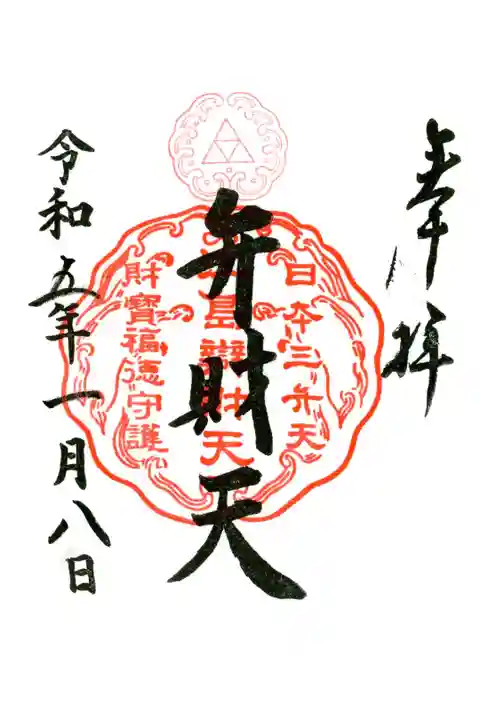 奉拝
日本三弁天
島辨財天
財寶福徳守護
弁財天
令和五年一月八日